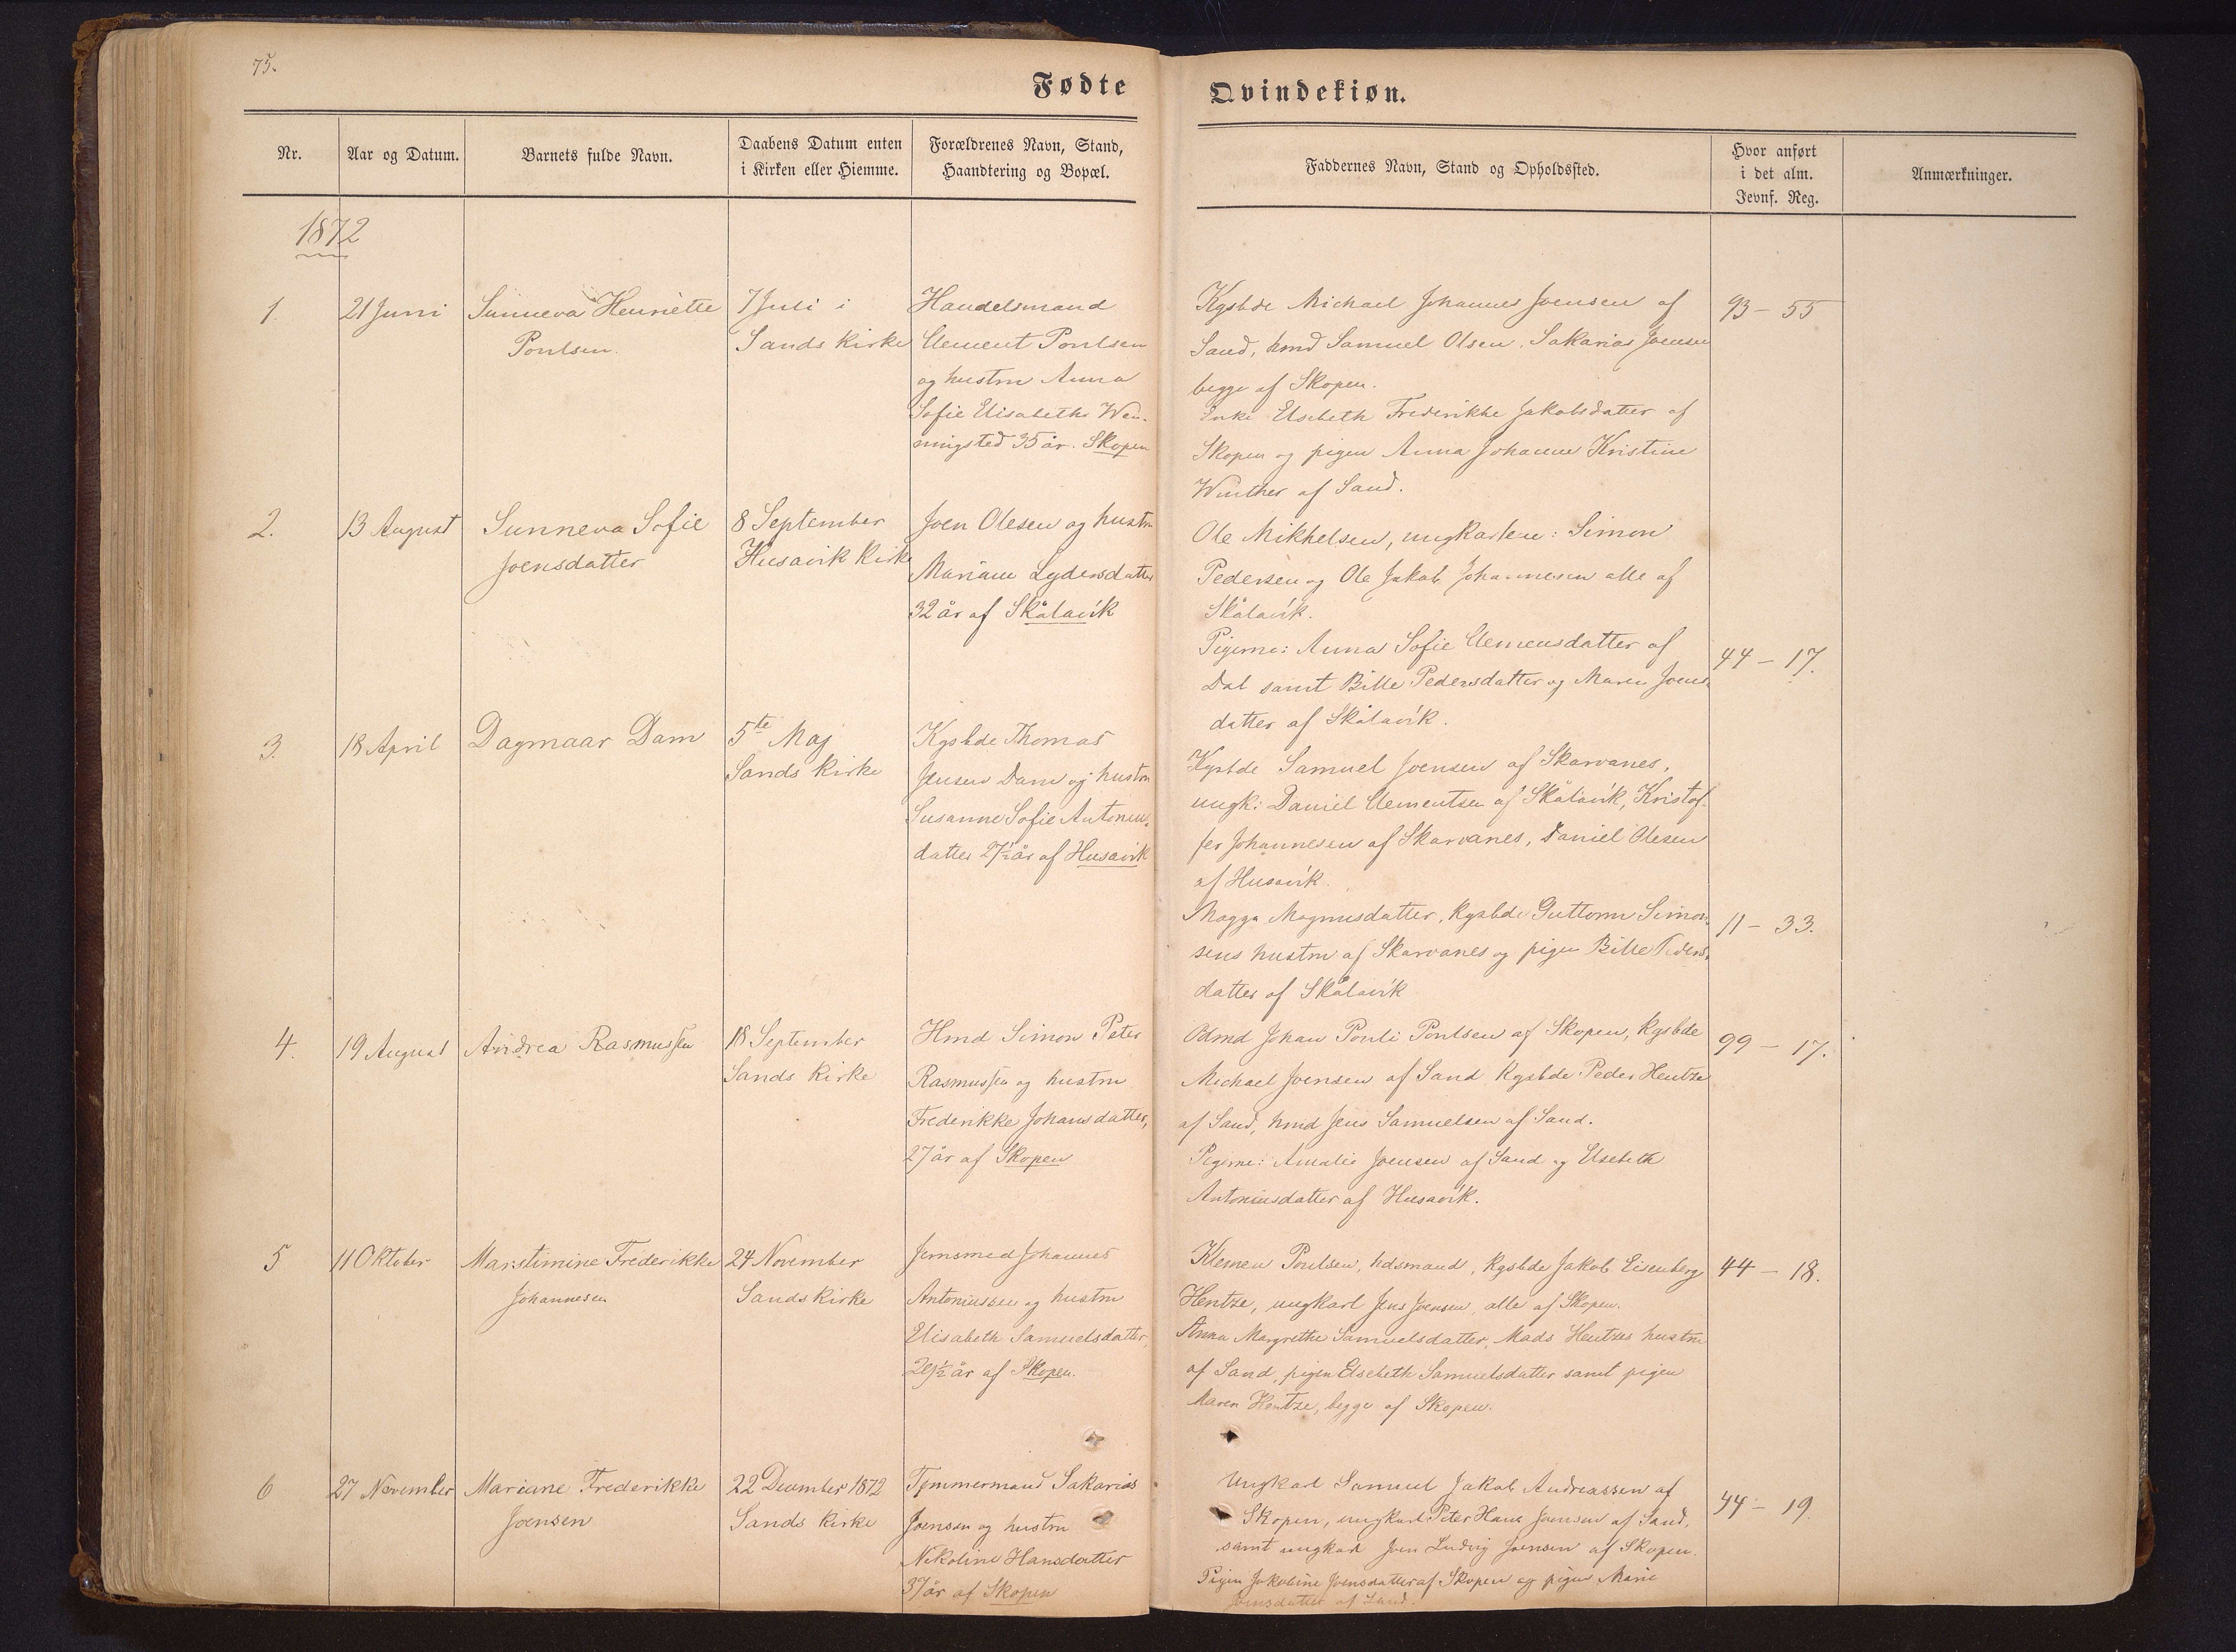 75.
Fødte
Qvindekiøn.
Nr.
Aar og Datum.
Barnets fulde Navn.
Daabens Datum enten
i Kirken eller Hiemme.
Forældrenes Navn, Stand,
Haandtering og Bopæl.
Faddernes Navn, Stand og Opholdssted.
Hvor anført
i det alm.
Jevnf. Reg.
Anmærkninger.
1872
1.
21 Juni
Sunneva Henriette
Poulsen.
7 Juli i
Sands Kirke
Handelsmand
Clement Poulsen
og hustru Anna
Sofie Elisabeth Wen-
ningsted 35 år. Skopen
Kgsbde Michael Johannes Joensen af
Sand, hmd Samuel Olsen, Sakarias Joensen
begge af Skopen.
Enke Elsebeth Frederikke Jakobsdatter af
Skopen og pigen Anna Johanne Kristine
Winther af Sand.
93 - 55
2.
13 August
Sunneva Sofie
Joensdatter
8 September
Husavik Kirke
Joen Olesen og hustru
Mariane Lydersdatter
32 år af Skålavik
Ole Mikkelsen, ungkarlene: Simon
Pedersen og Ole Jakob Johannesen alle af
Skålavik.
Pigerne: Anna Sofie Clemensdatter af
Dal samt Bille Pedersdatter og Maren Joens-
datter af Skålavik.
44 - 17.
3.
18 April
Dagmaar Dam
5te Maj
Sands Kirke
Kgsbde Thomas
Jensen Dam og hustru
Susanne Sofie Antonius-
datter 27½ år af Husavik
Kgsbde Samuel Joensen af Skarvanes,
ungk: Daniel Clementsen af Skålavik, Kristof-
fer Johannesen af Skarvanes, Daniel Olesen
af Husavik.
Magga Magnusdatter, kgsbde Guttorm Simon-
sens hustru af Skarvanes og pigen Bille Peders-
datter af Skålavik
11 - 33.
4.
19 August
Andrea Rasmussen
18 September
Sands Kirke
Hmd Simon Peter
Rasmussen og hustru
Frederikke Johansdatter,
27 år af Skopen
Odmd Johan Pouli Poulsen af Skopen, kgsbde
Michael Joensen af Sand kgsbde Peder Hentze
af Sand, hmd Jens Samuelsen af Sand.
Pigerne: Amalie Joensen af Sand og Elsebeth
Antoniusdatter af Husavik.
99 - 17.
5
11 Oktober
Maristimine Frederikke
Johannesen
24 November
Sands Kirke
Jernsmed Johannes
Antoniussen og hustru
Elisabeth Samuelsdatter,
29½ år af Skopen.
Klemen Poulsen, hdsmand, kgsbde Jakob Eisenberg
Hentze, ungkarl Jens Joensen, alle af Skopen.
Anna Margrethe Samuelsdatter, Mads Hentzes hustru
af Sand, pigen Elsebeth Samuelsdatter samt pigen
Maren Hentze, begge af Skopen.
44 - 18.
6
27 November
Mariane Frederikke
Joensen
22 December 1872
Sands Kirke
Tømmermand Sakarias
Joensen og hustru
Nikoline Hansdatter
37 år af Skopen
Ungkarl Samuel Jakob Andreassen af
Skopen, ungkarl Peter Hans Joensen af Sand,
samt ungkarl Joen Ludvig Joensen af Skopen.
Pigen Jakobine Joensdatter af Skopen og pigen Marie
Joensdatter af Sand.
44 - 19.